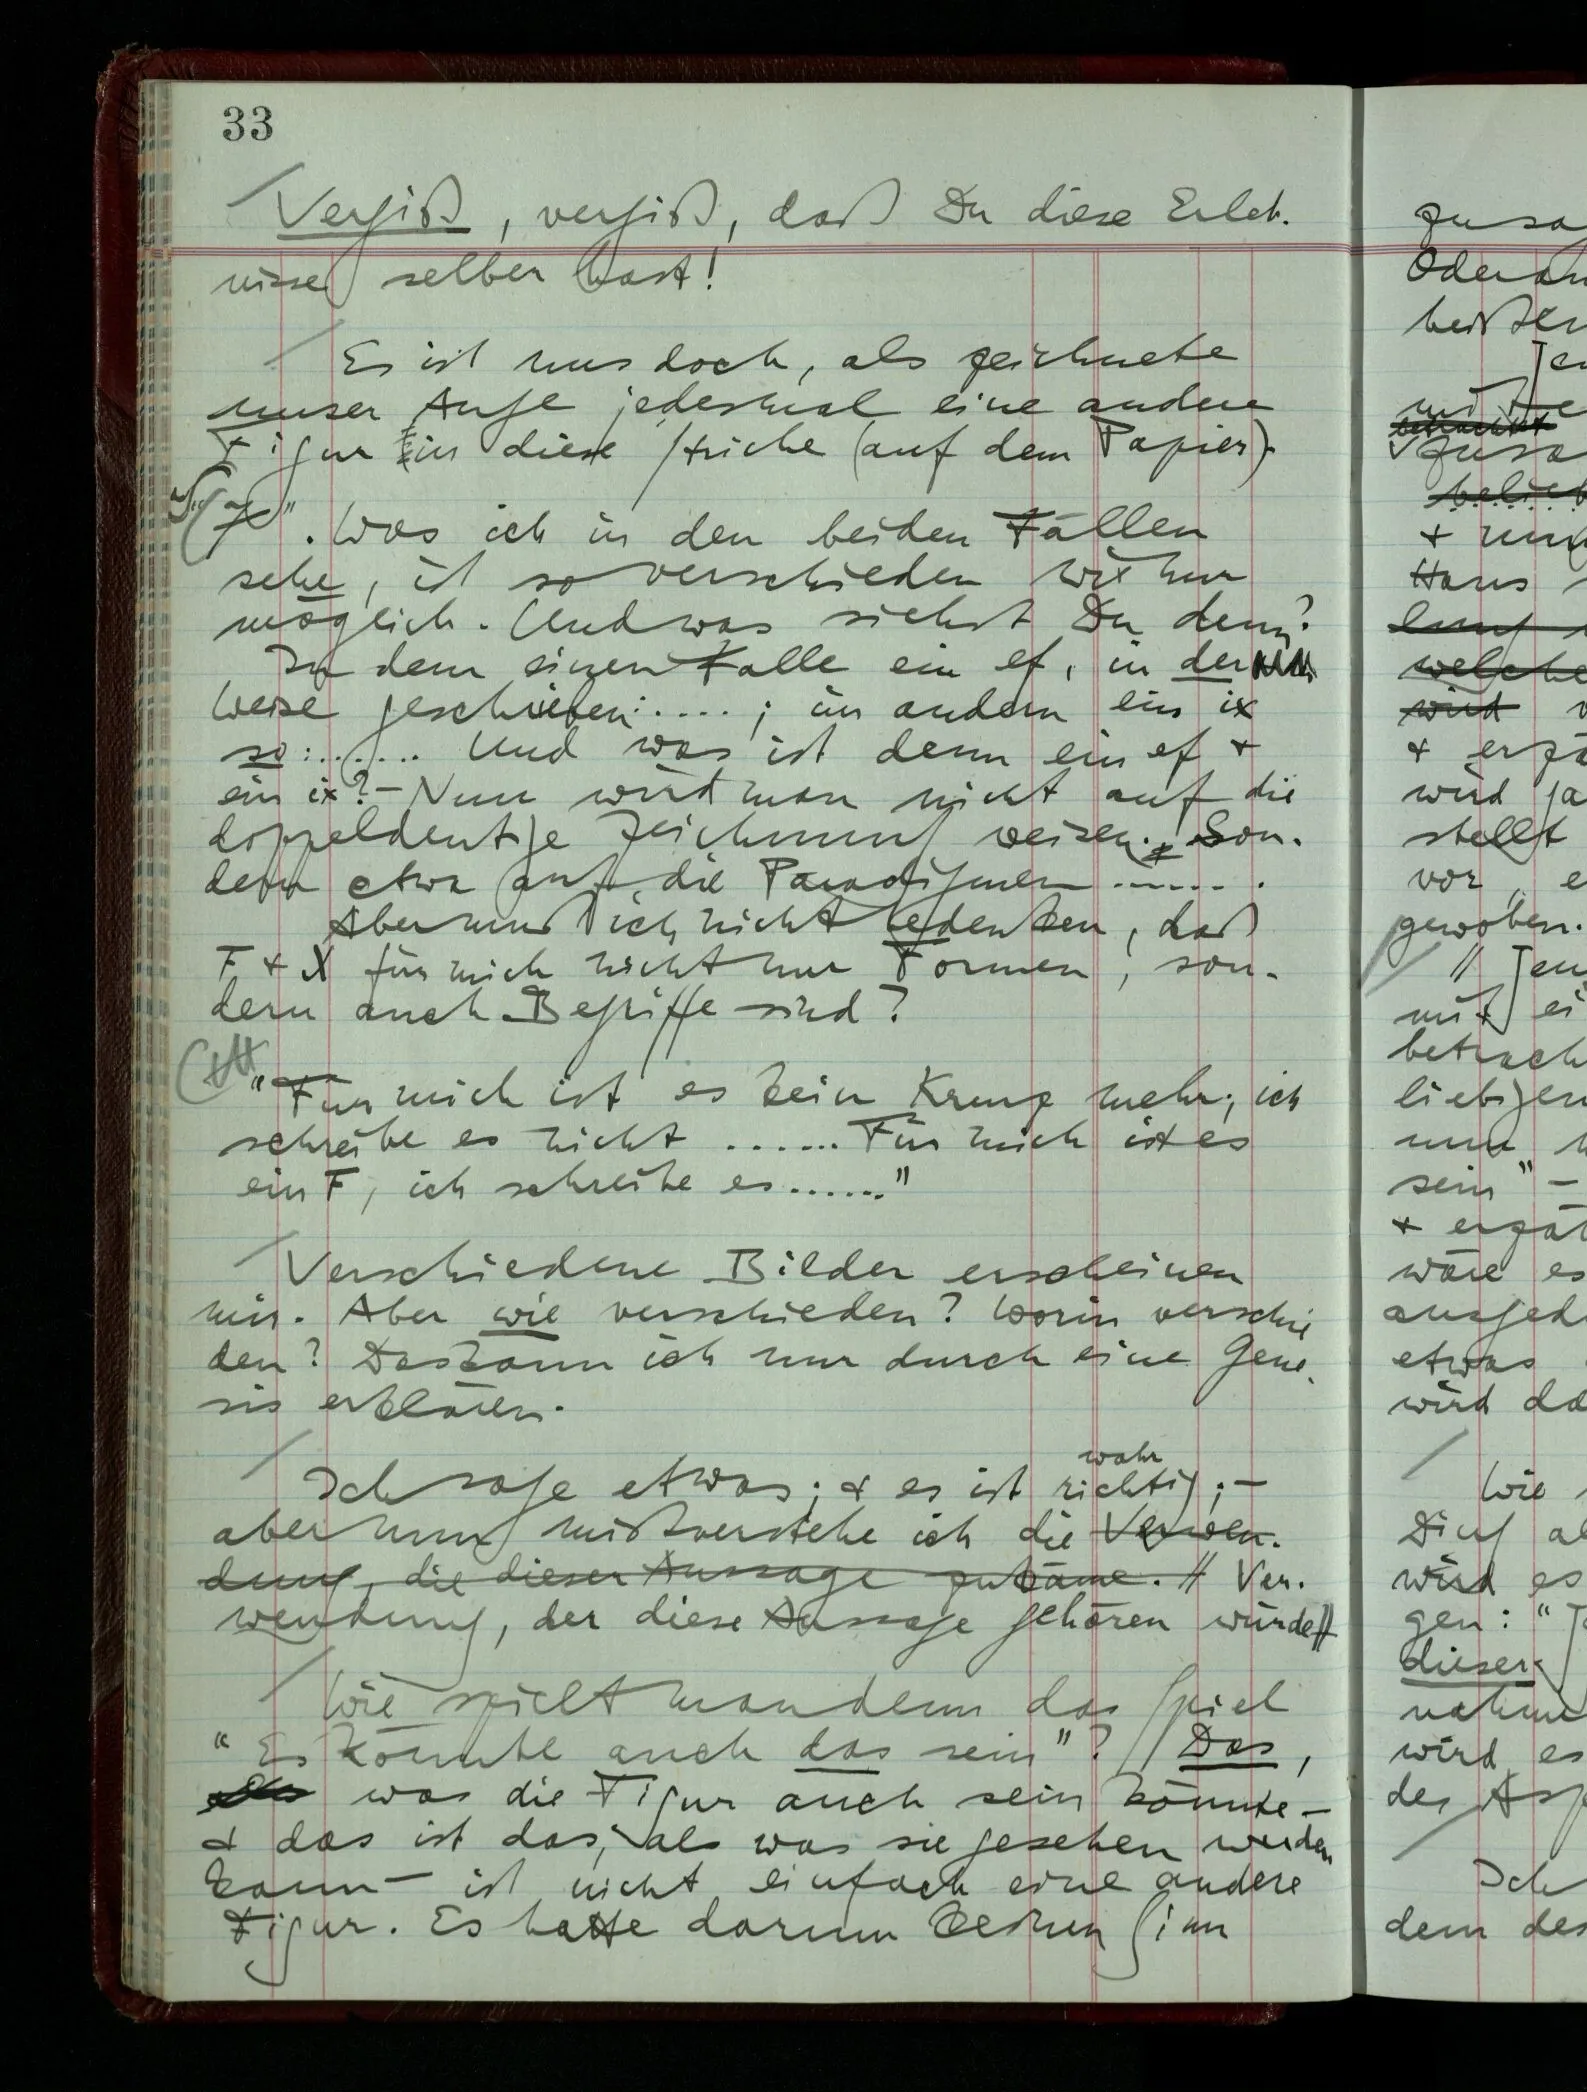 33
Vergiß, vergiß, daß Du diese Erleb-
nisse selber hast!
Es ist uns doch, als zeichnete
unser Auge jedesmal eine andere
Figur in diese Striche (auf dem Papier).
". Was ich in den beiden Fällen
sehe, ist so verschieden wie nur
möglich. Und was siehst Du denn?
In dem einen Falle ein ef, in der
Weise geschrieben: ....; im andern ein ix
so: ...... Und was ist denn ein ef &
ein ix? – Nun wird man nicht auf die
doppeldeutige Zeichnung weisen. Son-
dern etwa auf die Paradigmen ...... .
Aber muß ich nicht bedenken, daß
F & X für mich nicht nur Formen, son-
dern auch Begriffe sind?
"Für mich ist es kein Kreuz mehr; ich
schreibe es nicht ...... Für mich ist es
ein F, ich schreibe es ......"
Verschiedene Bilder erscheinen
mir. Aber wie verschieden? Worin verschie
den? Das kann ich nur durch eine Gene-
sis erklären.
wahr
Ich sage etwas; & es ist richtig; –
aber nun mißverstehe ich die Verwen-
dung, die dieser Aussage zukäme. // Ver-
wendung, der diese Aussage gehören würde //
Wie spielt man denn das Spiel
"Es könnte auch das sein"? // Das,
was die Figur auch sein könnte –
& das ist das, als was sie gesehen werden
kann – ist nicht einfach eine andere
Figur. Es hatte darum keinen Sinn
zu
Oder
Haus
welche
wird
&
wird
stellt
vor
gewoben.
//
mit
sein" –
&
wäre es
etwas
wird
Wie
Ding
wird es
gen: "
dieser
wird es
der
Ich
dem